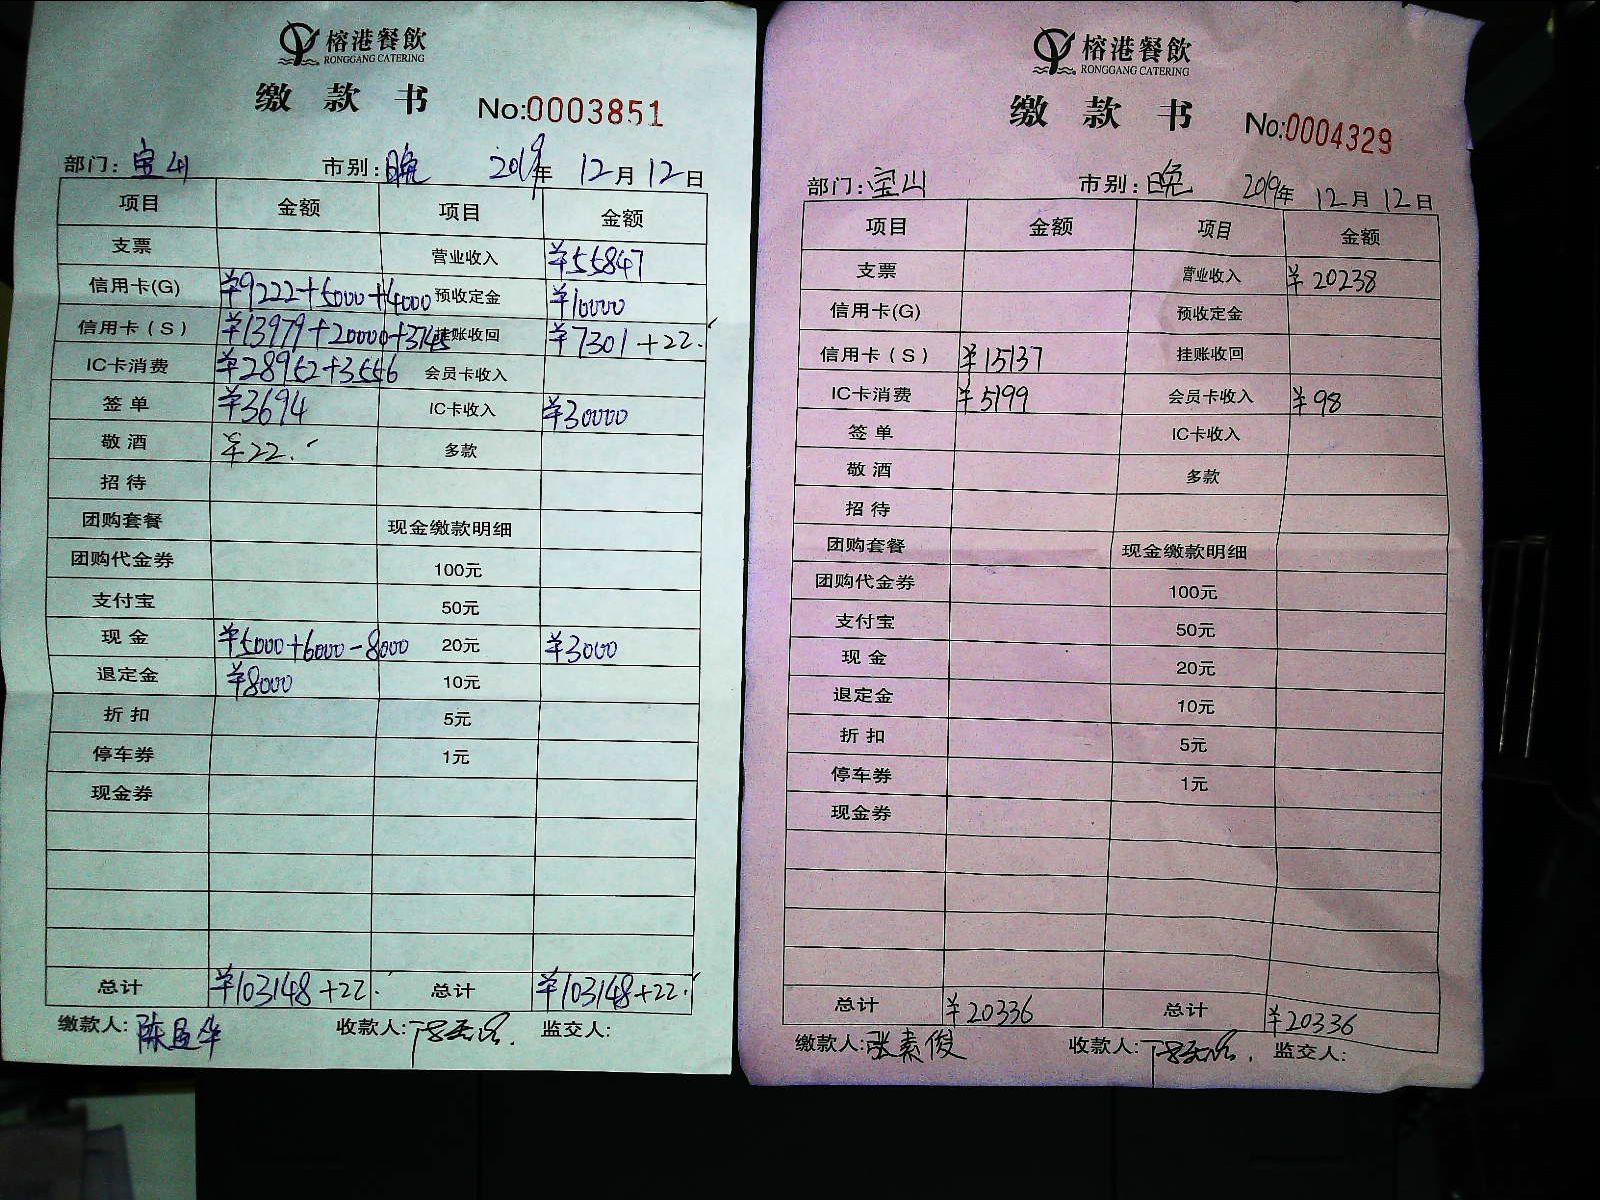 榕港餐飲
RONGGANG CATERING
缴 款 书 No:0003851
部门: 宝山 市别: 晚 2019年 12月12日
项目 金额 项目 金额
支票 营业收入 ¥55847
信用卡(G) ¥9222+5000+4000 预收定金 ¥10000
信用卡(S) ¥13979+20000+3745 挂账收回 ¥7301+22.
IC卡消费 ¥28952+3556 会员卡收入
签单 ¥3694 IC卡收入 ¥30000
敬酒 ¥22. 多款
招待
团购套餐 现金缴款明细
团购代金券 100元
支付宝 50元
现金 ¥5000+6000-8000 20元 ¥3000
退定金 ¥8000 10元
折扣 5元
停车券 1元
现金券
总计 ¥103148+22. 总计 ¥103148+22.
缴款人: 收款人: 监交人:
榕港餐飲
RONGGANG CATERING
缴 款 书 No:0004329
部门: 宝山 市别: 晚 2019年 12月12日
项目 金额 项目 金额
支票 营业收入 ¥20238
信用卡(G) 预收定金
信用卡(S) ¥15137 挂账收回
IC卡消费 ¥5199 会员卡收入 ¥98
签单 IC卡收入
敬酒 多款
招待
团购套餐 现金缴款明细
团购代金券 100元
支付宝 50元
现金 20元
退定金 10元
折扣 5元
停车券 1元
现金券
总计 ¥20336 总计 ¥20336
缴款人: 张素俊 收款人: 监交人: